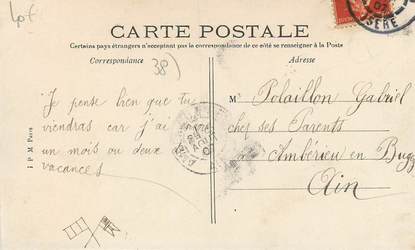 4pf
07
ISERE
CARTE POSTALE
Certains pays étrangers n'acceptant pas la correspondance de ce côté se renseigner à la Poste
Correspondance
Adresse
38)
Je pense bien que tu
viendras car j'ai
un mois ou deux
vacances
M. Polaillon Gabriel
chez ses Parents
à Ambérieu en Bug
Ain
I P M Paris